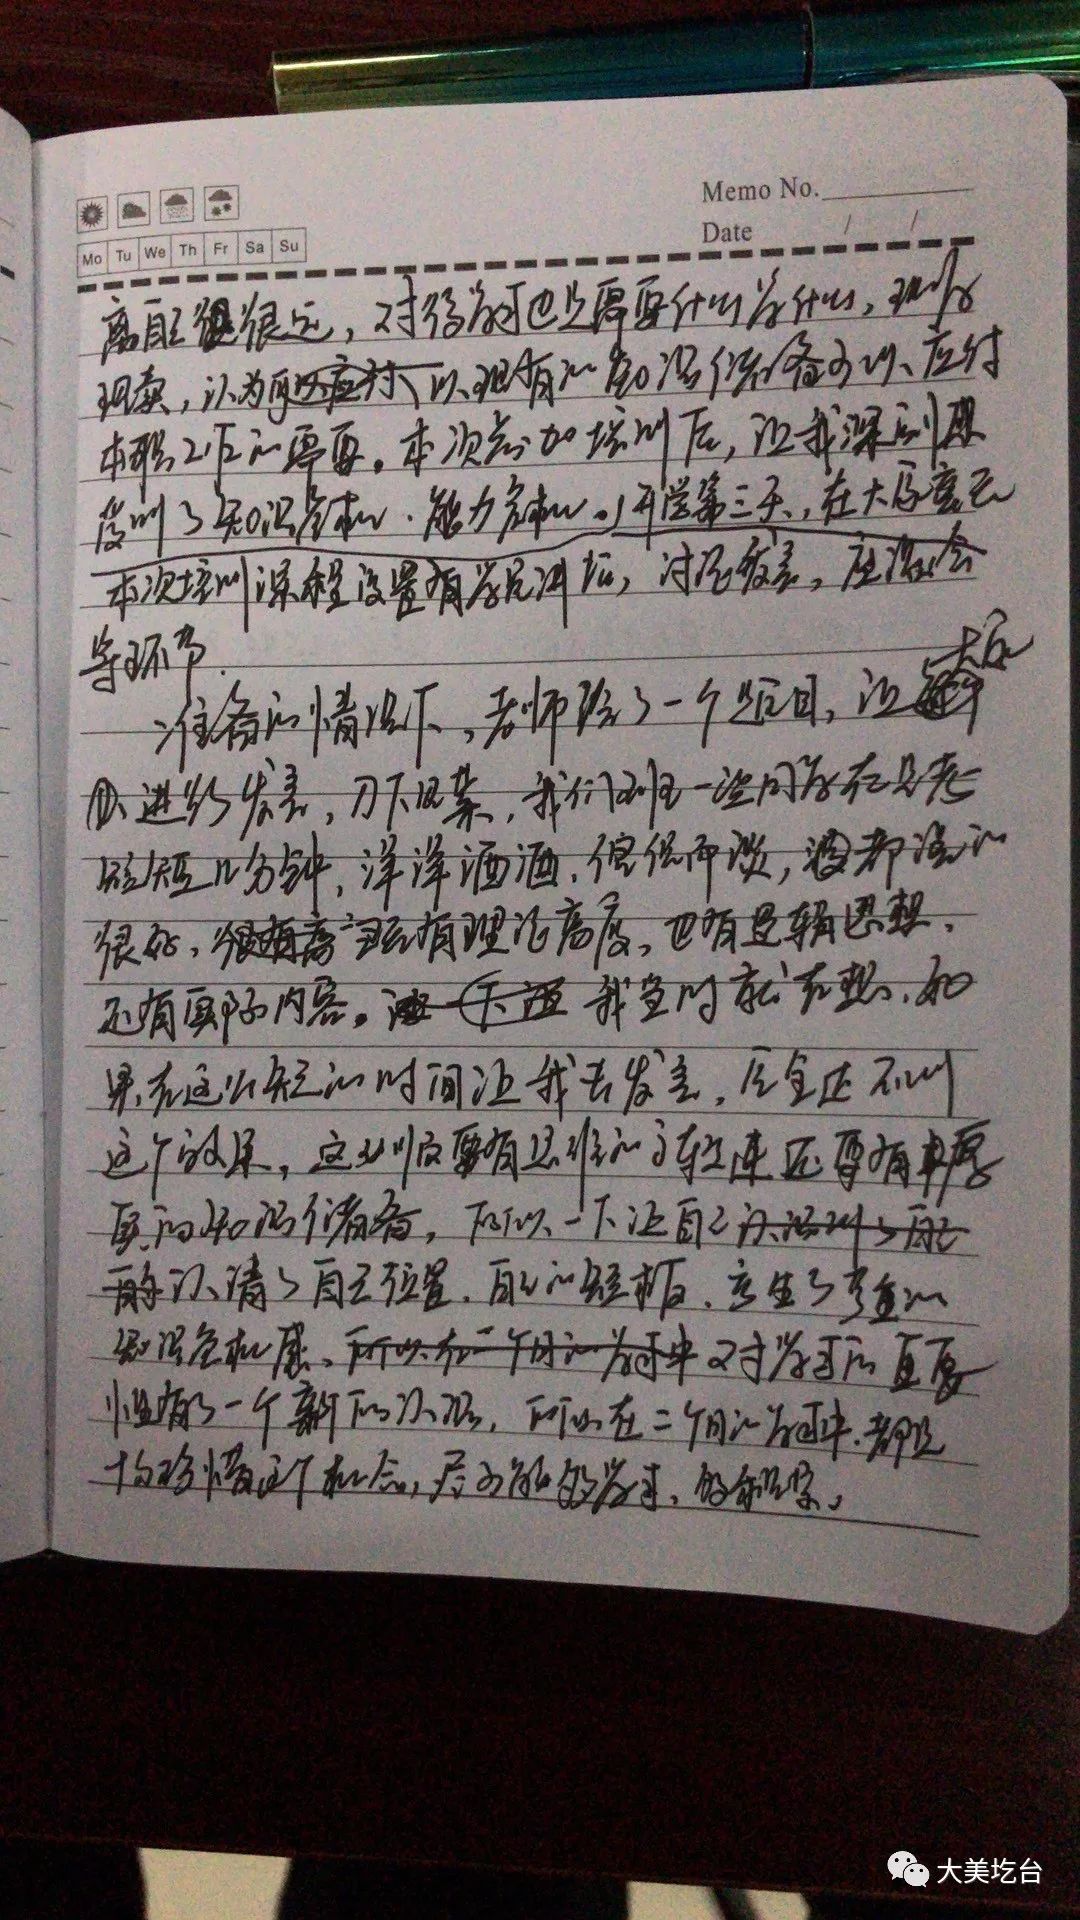 Memo No.
Date / /
Mo Tu We Th Fr Sa Su
离自己很远，对待学习也是需要什么学什么，现学
现卖，认为以现有的知识储备可以应付
本职工作的需要。本次参加培训后，让我深刻感
受到了知识危机、能力危机。开学第三天，在大家毫无
本次培训课程设置有学员讲坛，讨论发言，座谈会
等环节.
准备的情况下，老师给了一个题目，让大家
进行发言，我们班一些同学在思考
短短几分钟，洋洋洒洒、侃侃而谈，都讲的
很好，既有理论高度，也有逻辑思想，
还有实际内容。我当时就在想，如
果在这么短的时间让我去发言，完全达不到
这个效果，这不仅要有思维的还要有丰厚
的知识储备，所以一下让自己
认清了自己位置，自己的短板，产生了严重的
知识危机感，对学习的重要
性有了一个新的认识，所以在二个月的学习中，都
十分珍惜这个机会，尽可能多学习、多积累。
大美圪台